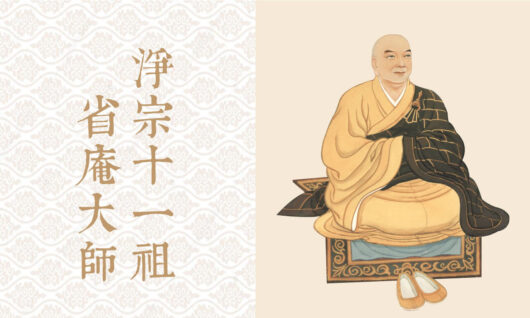 淨宗十一祖
省庵大師